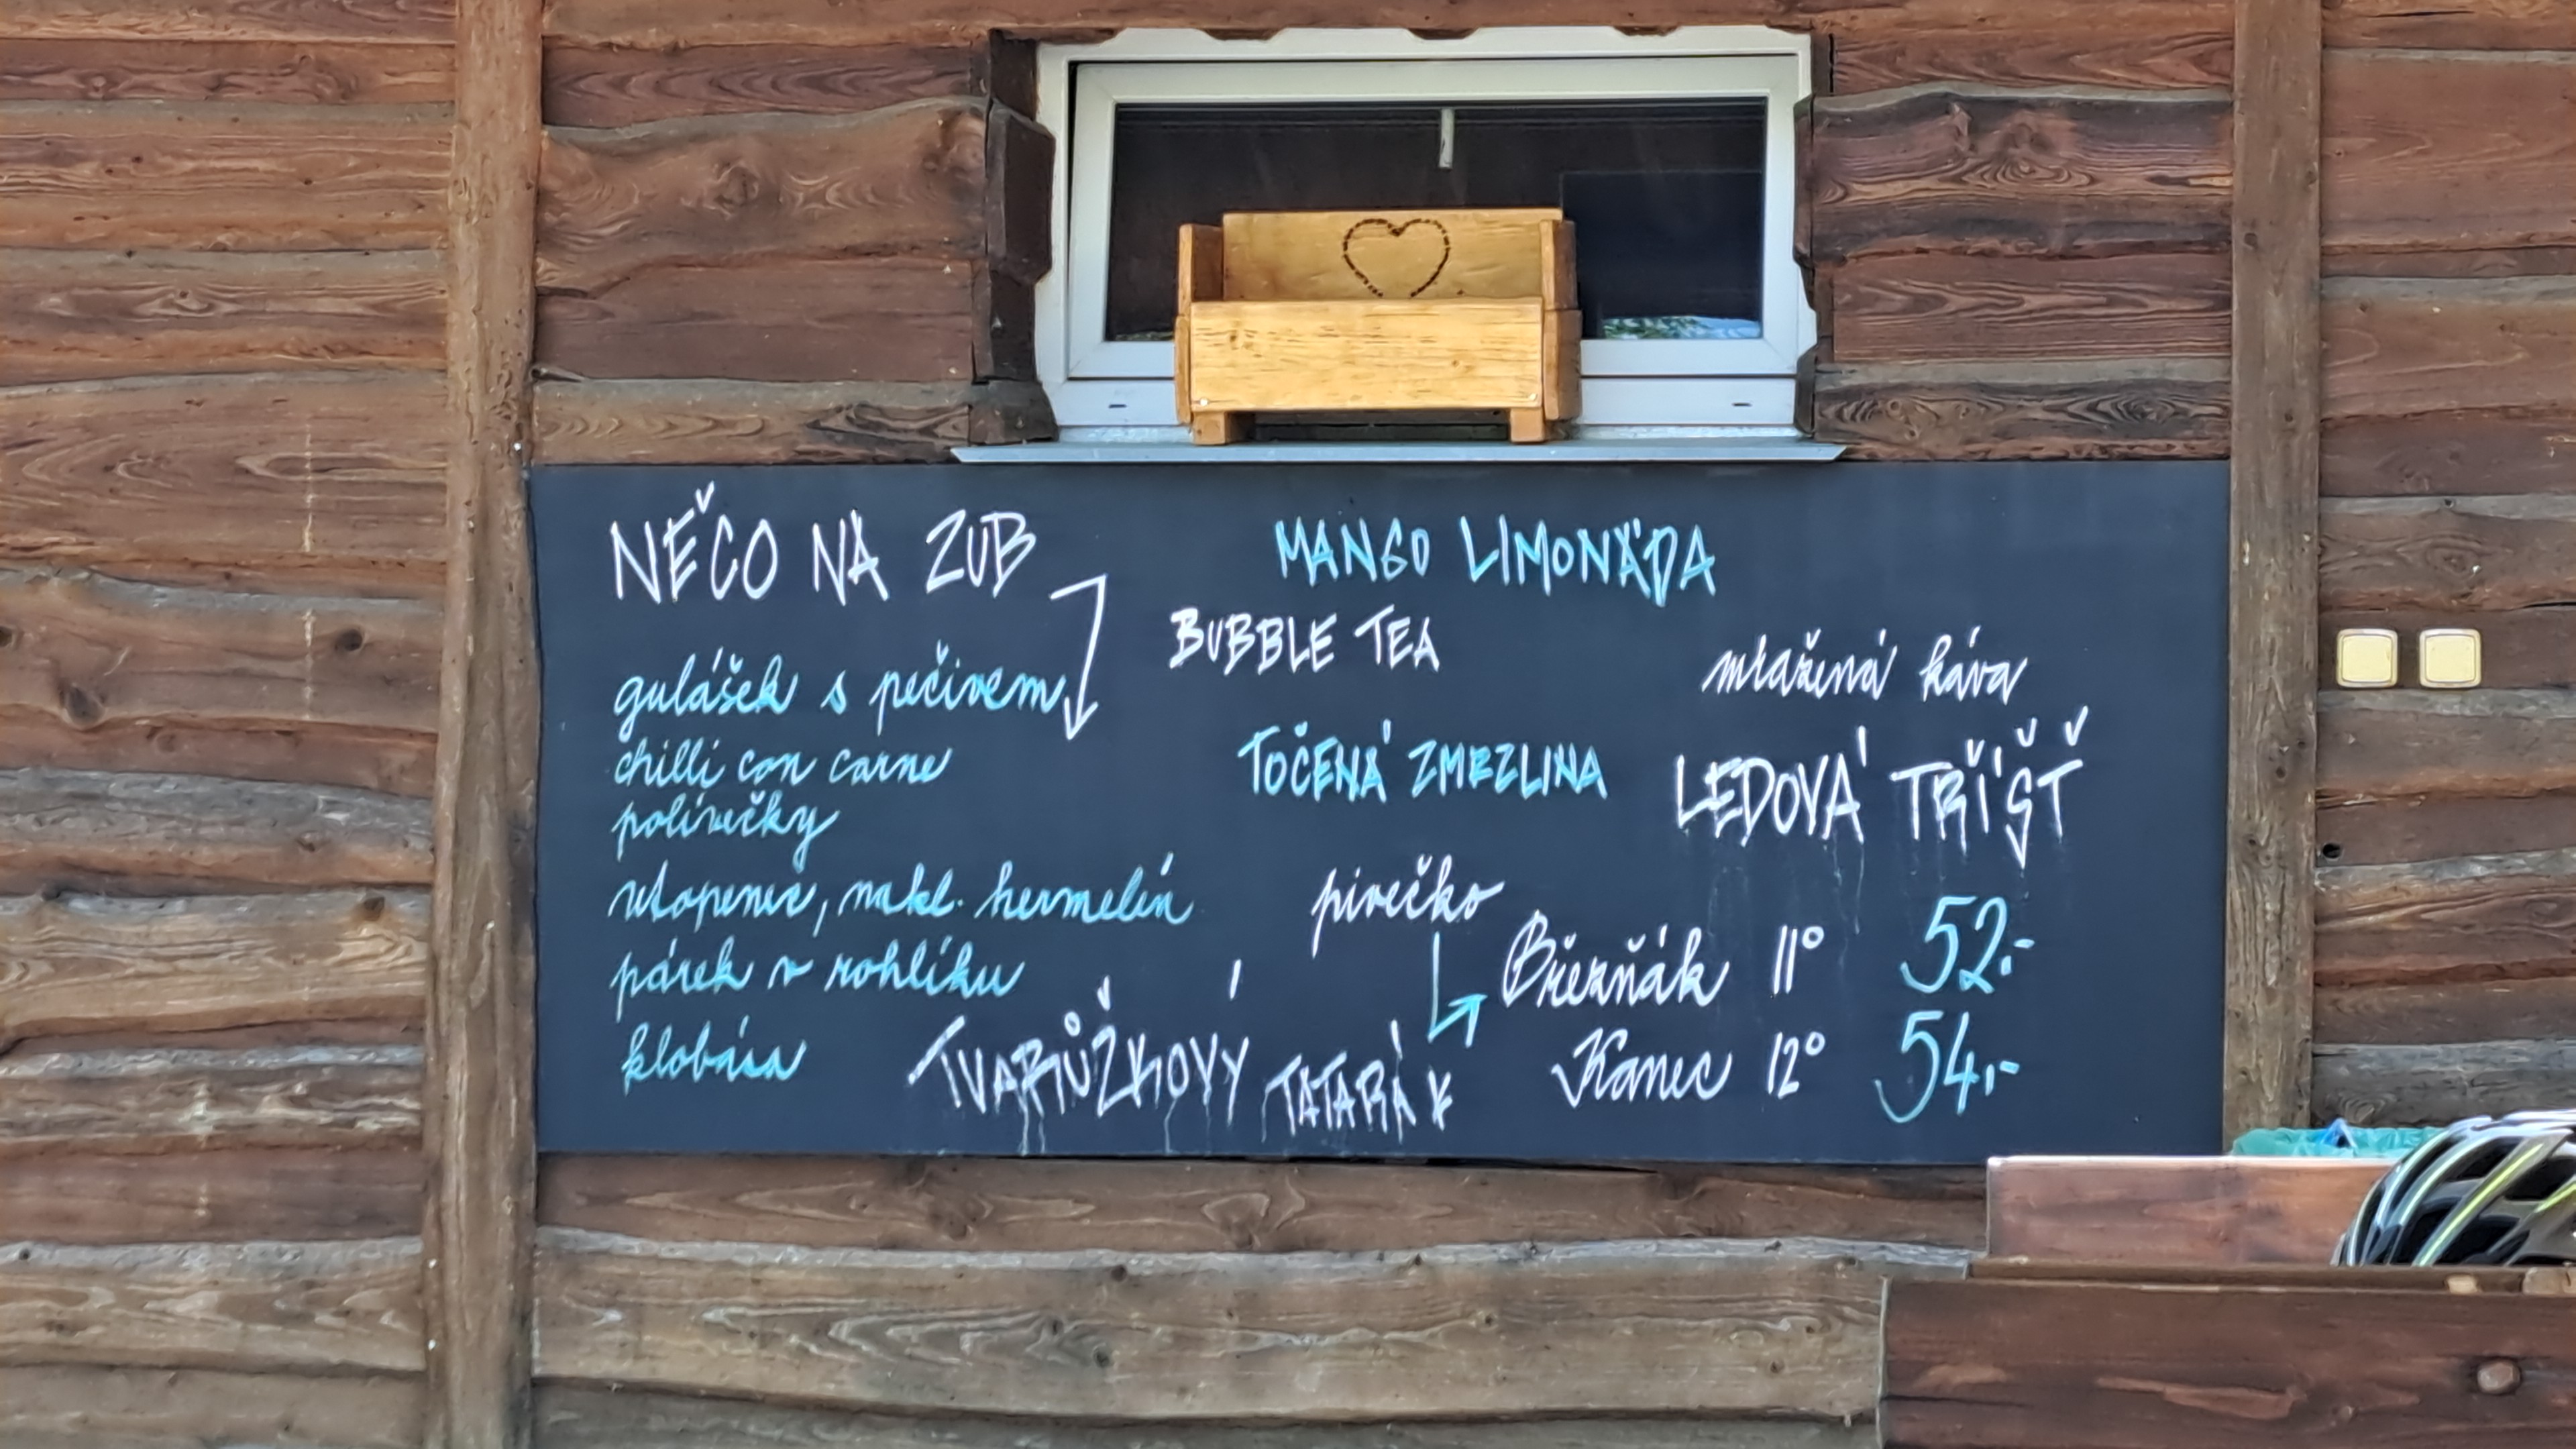 NĚCO NA ZUB
gulášek s pečivem
chilli con carne
polívečky
utopenec, nakl. hermelín
párek v rohlíku
klobása
TVARŮŽKOVÝ TATARÁK
MANGO LIMONÁDA
BUBBLE TEA
TOČENÁ ZMRZLINA
mražená káva
LEDOVÁ TŘÍŠŤ
pivečko
Březňák 11° 52,-
Kanec 12° 54,-